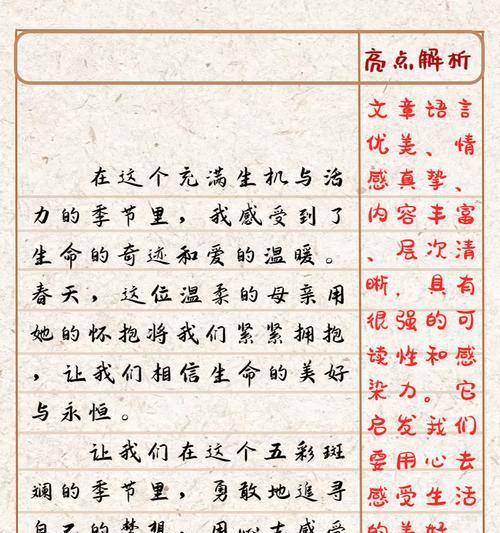 在这个充满生机与活
力的季节里，我感受到了
生命的奇迹和爱的温暖。
春天，这位温柔的母亲用
她的怀抱将我们紧紧拥抱
，让我们相信生命的美好
与永恒。
让我们在这个五彩斑
斓的季节里，勇敢地追寻
自己的梦想，用心去感受
亮点解析
文章语言
优美、情
感真挚、
内容丰富
、层次清
晰，具有
很强的可
读性和感
染力。它
启发我们
要用心去
感受生活
的美好